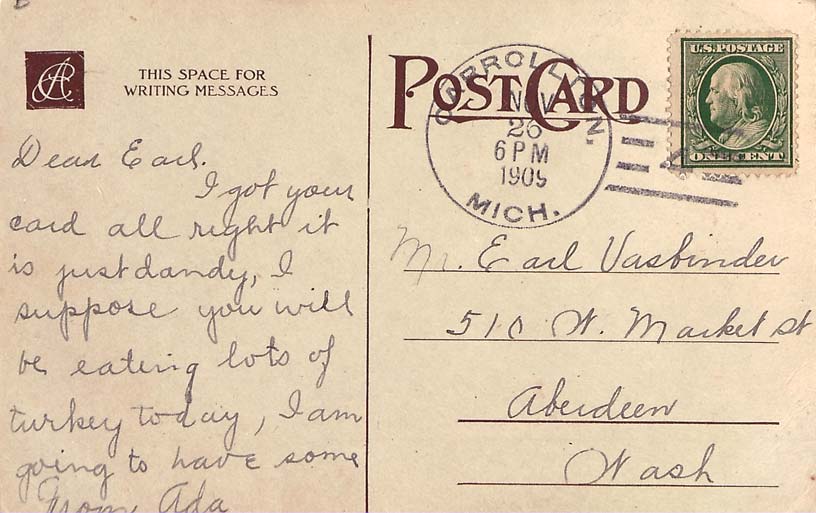 THIS SPACE FOR
WRITING MESSAGES
Dear Earl.
I got your
card all right it
is just dandy, I
suppose you will
be eating lots of
turkey today, I am
going to have some
From Ada
POST CARD
CARROLLTON,
NOV
26
6 PM
1909
MICH.
U.S. POSTAGE
ONE CENT
Mr. Earl Vasbinder
510 W. Market st
Aberdeen
Wash